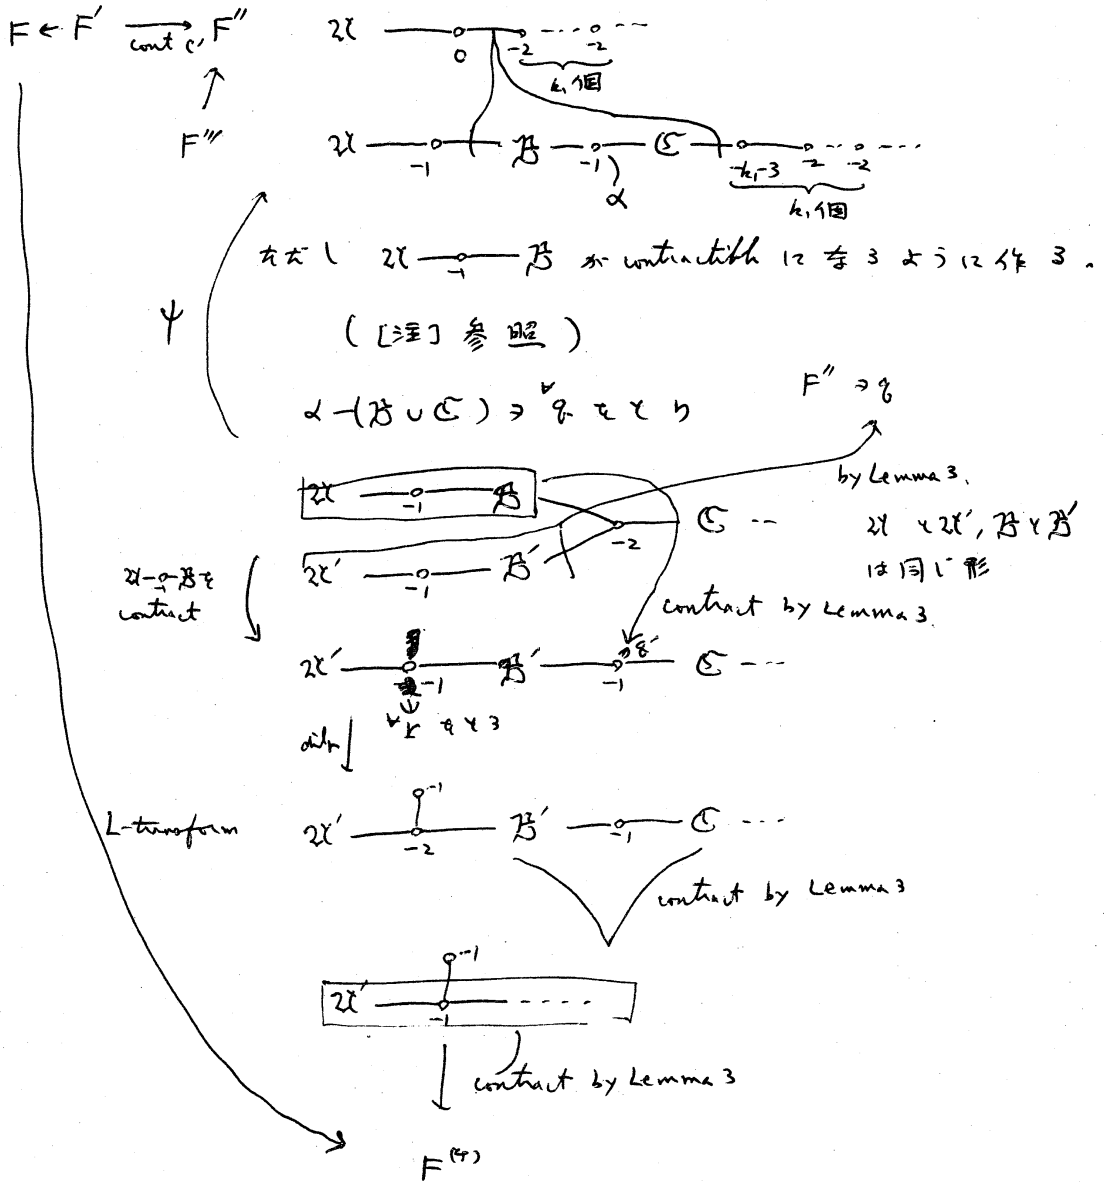 F ← F′ → F″
cont C′
𝔄 — 0 -2 ---- -2 ---
k₁個
F‴
𝔄 — -1 — 𝔅 — -1 — ℭ — -k₁-3 -2 -- -2 ---
α
k₁個
ただし 𝔄 — -1 — 𝔅 が contractible になるように作る.
ψ
([注] 参照)
F″ ∋ q
α - (𝔅 ∪ ℭ) ∋ ∀q をとり
by Lemma 3.
𝔄 — -1 — 𝔅
-2 — ℭ ---
𝔄 と 𝔄′, 𝔅 と 𝔅′
は同じ形
𝔄′ — -1 — 𝔅′
𝔄 — -1 — 𝔅 を
contract
contract by Lemma 3.
𝔄′ — -1 — 𝔅′ — -1 — ℭ ---
q′
∀r をとる
dil r
-1
L-transform
𝔄′ — -2 — 𝔅′ — -1 — ℭ ---
contract by Lemma 3
-1
𝔄′ — -1 — ----
contract by Lemma 3
F⁽⁴⁾